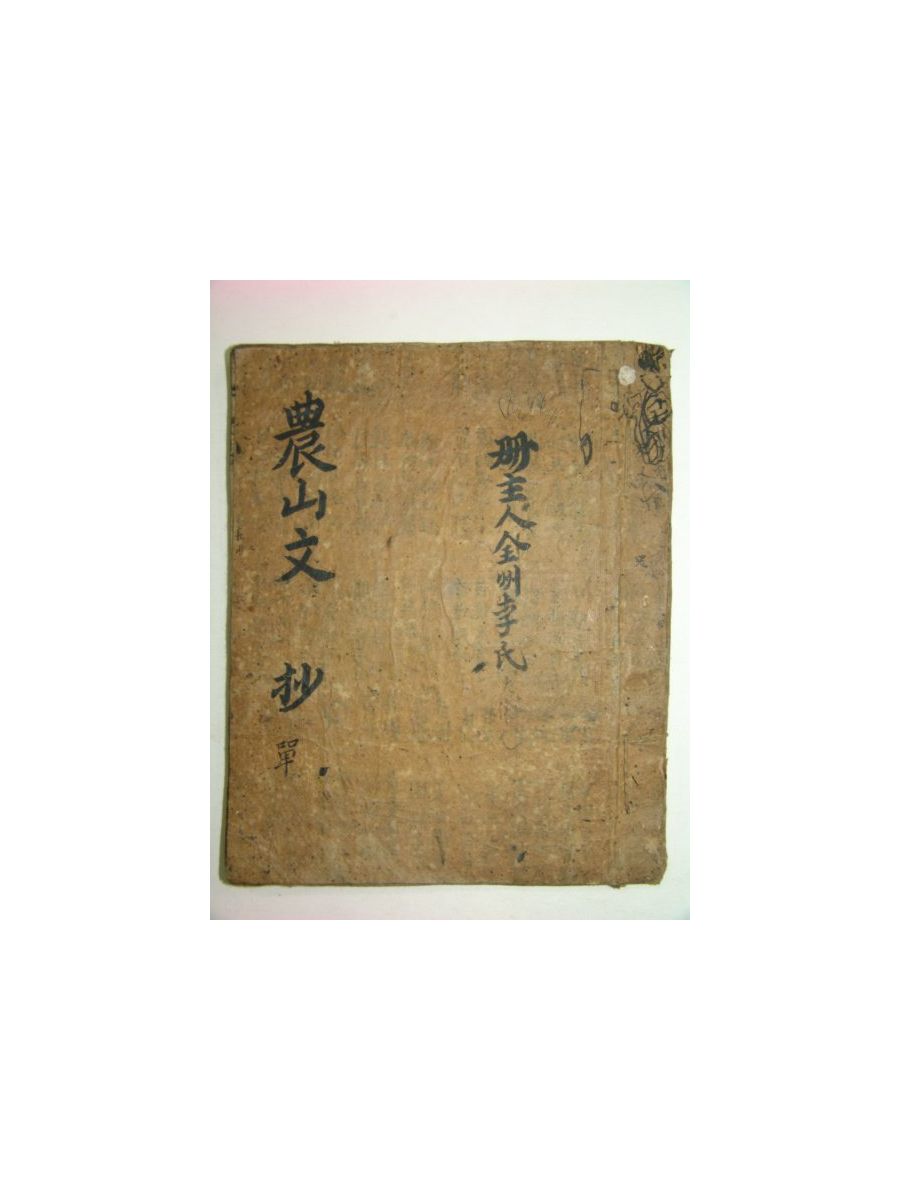 册主人全州李氏
農山文 抄 單